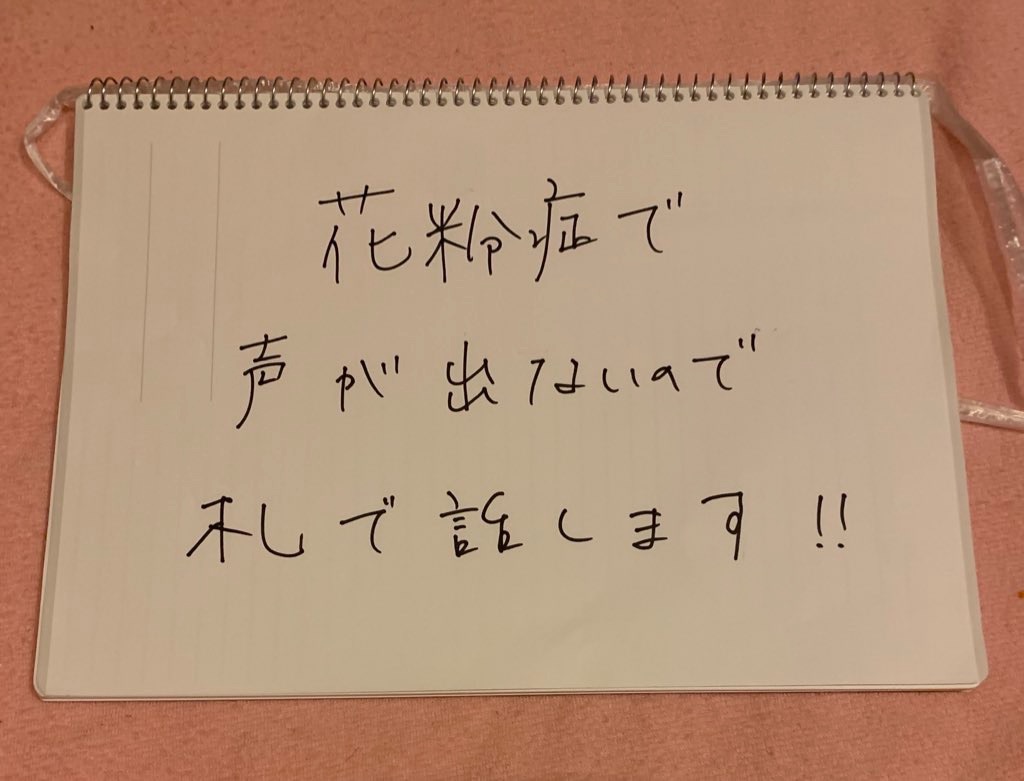 花粉症で
声が出ないので
札で話します!!